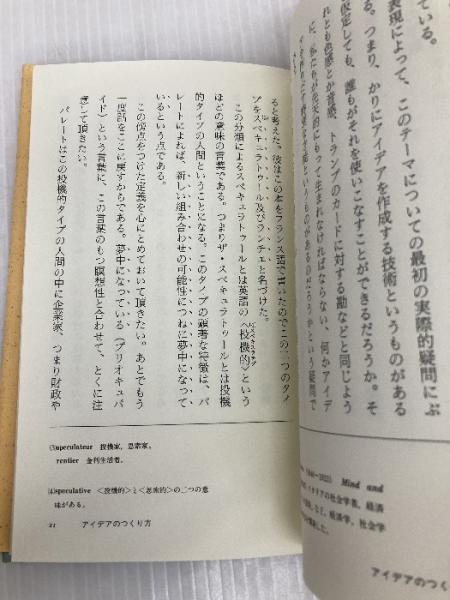 ている。
表現によって、このテーマについての最初の実際的疑問にぶ
る。つまり、かりにアイデアを作成する技術というものがある
仮定しても、誰もがそれを使いこなすことができるだろうか。そ
れとも色感とか音感、トランプのカードに対する勘などと同じよう
に、私たちが先天的にもって生まれなければならない、何かアイデ
というものがあるのだろうかという疑問で
ると考えた。彼はこの本をフランス語で書いたのでこの二つのタイ
プをスペキュラトゥール及びランチェと名づけた。
この分類によるスペキュラトゥールとは英語の〈投機的〉という
スペキュラティブ
ほどの意味の言葉である。つまりザ・スペキュラトゥールとは投機
的タイプの人間ということになる。このタイプの顕著な特徴は、パ
レートによれば、新しい組み合わせの可能性につねに夢中になって
いるという点である。
この傍点をつけた定義を心にとめておいて頂きたい。あとでもう
一度話をここに戻すからである。夢中になっている（プリオキュパ
イド）という言葉に、この言葉のもつ瞑想性と合わせて、とくに注
意して頂きたい。
パレートはこの投機的タイプの人間の中に企業家、つまり財政や
(3)speculateur 投機家、思索家。
rentier 金利生活者。
(4)speculative ＜投機的＞と＜思索的＞の二つの意
味がある。
21 アイデアのつくり方
Mind and
イタリアの社会学者、経済
など。経済学、社会学
アイデアのつく